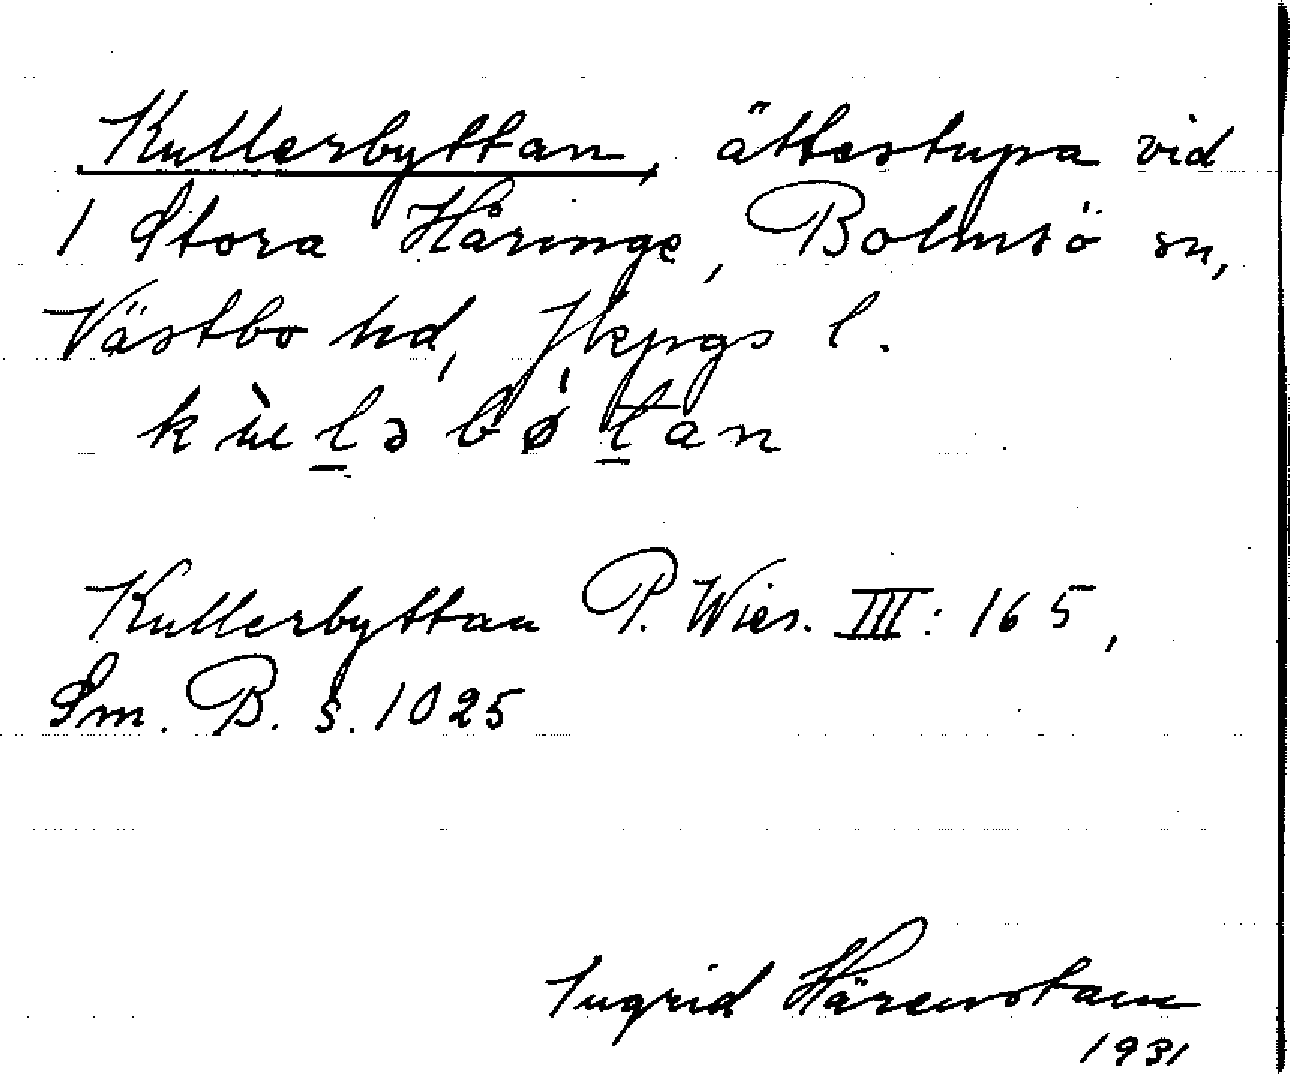 Kullerbyttan, ättestupa vid
1 Stora Håringe, Bolmsö sn,
Västbo hd, Jkpgs l.
Kullerbyttan P. Wies. III: 165,
Sm. B. s. 1025
Ingrid Härenstam
1931